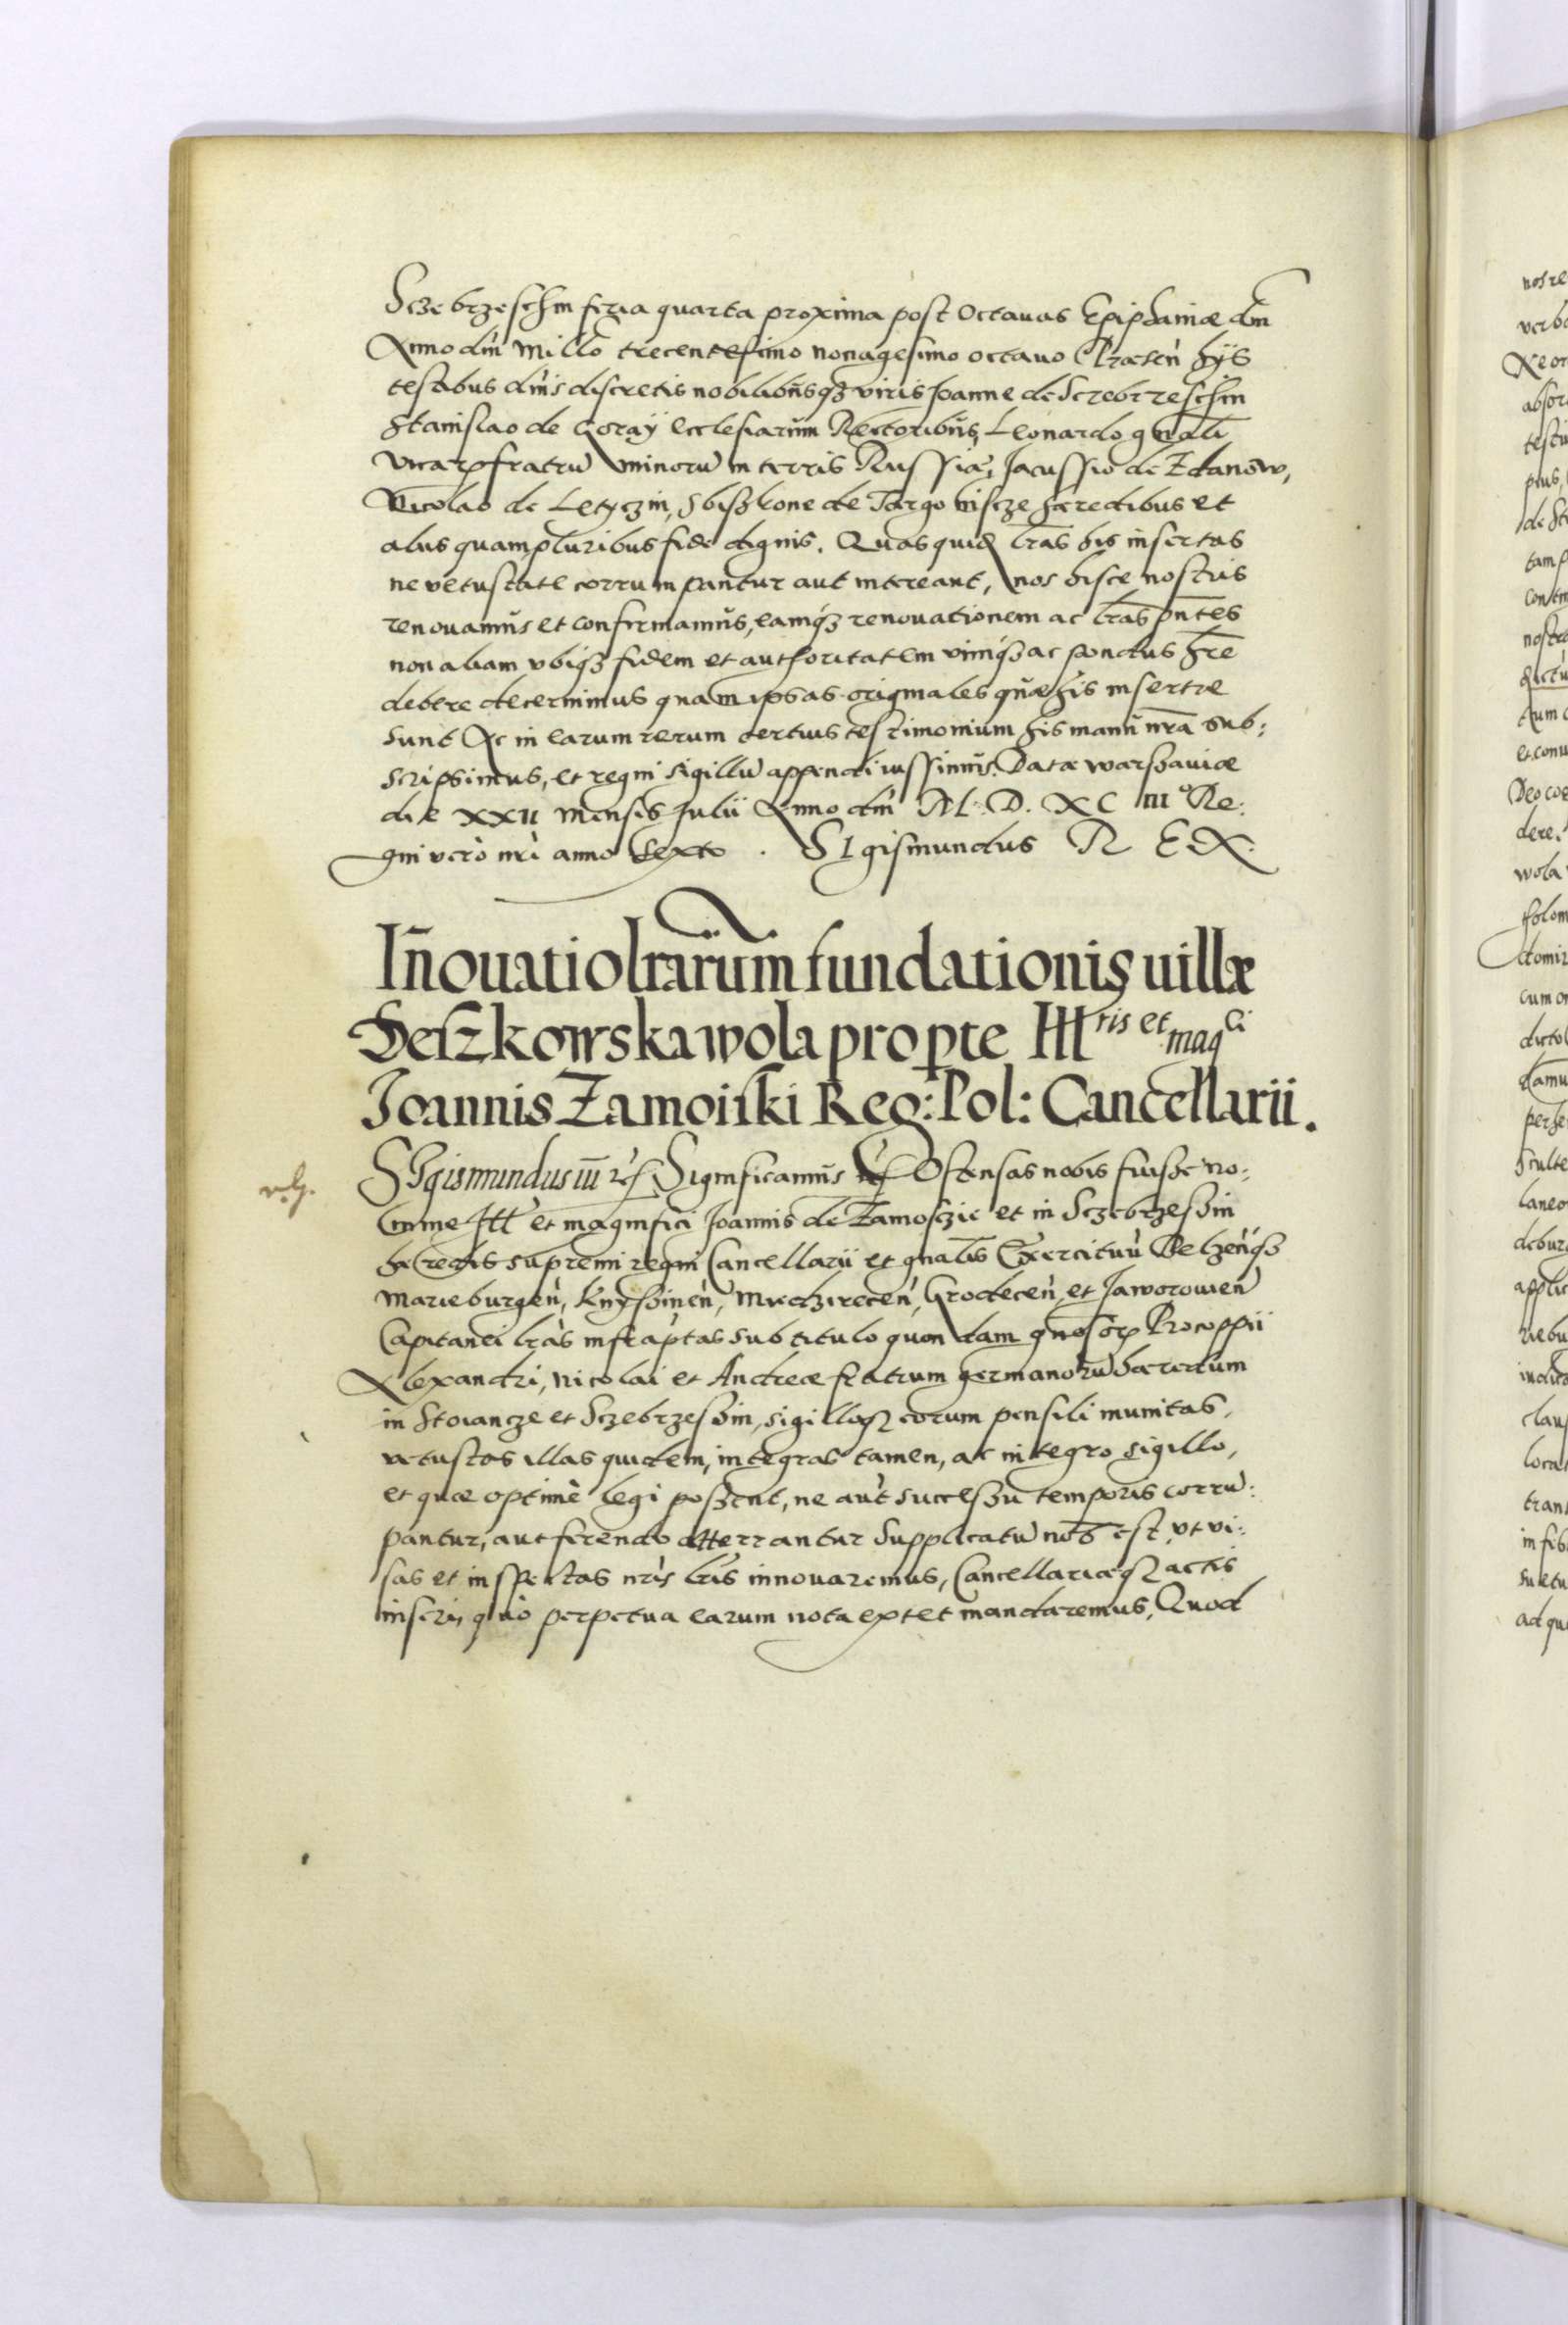 Sczebrzeschin feria quarta proxima post Octauas Epiphaniæ dni
Anno dni Millo trecentesimo nonagesimo octauo Præsen hÿs
testibus dnis discretis nobilibusqz viris Joanne de Screbrzeschin
Stanislao de Goraÿ Ecclesiarum Rectoribus, Leonardo gnali
vicar fratru minoru in terris Russiæ, Jacussio de Zdanow,
Nicolao de Letyczin, Sbiszkone de Targowiscze hæredibus et
alijs quampluribus fide dignis. Quas quid lras his insertas
ne vetustate corrumpantur aut intereant, nos hisce nostris
renouamus et confirmamus, eamqz renouationem ac lras pntes
non aliam vbiqz fidem et authoritatem vimqz ac pondus hre
debere decernimus quam ipsas originales quæ his insertæ
sunt Ac in earum rerum certius testimonium his manu nra sub:
scripsimus, et regni sigillu appendi iussimus. Datæ warsauiæ
die XXII mensis Julii Anno dni M. D. XC IIIº Re:
gni vero nri anno sexto. SIgismundus R E X.
Inouatio lrarum fundationis uillæ
Deszkowska wola pro pte Illtris et magci
Joannis Zamoiski Reg: Pol: Cancellarii.
SIgismundus iii Significamus Ostensas nobis fuisse no:
mine Ill et magnifici Joannis de Zamoscie et in Sczebrzessin
hæredis supremi regni Cancellarii et gnalis Exercituu Belzenqz
Marieburgen, Knyssinen, Miedzirecen, Grodecen, et Jaworouien
Capitanei lras infraptas sub titulo quondam gnosor Procoppii
Alexandri, Nicolai et Andreæ fratrum germanoru hæredum
in Stoiancze et Sczebrzessin, sigilloqz eorum pensili munitas,
vetustas illas quidem, integras tamen, ac integro sigillo,
et quæ optime legi possent, ne aut successu temporis corru:
pantur, aut ferendo atterrantur Supplicatu nob est, vt vi:
sas et inspectas nris lris innouaremus, Cancellariæqz actis
inseri, quo perpetua earum nota extet mandaremus. Quod